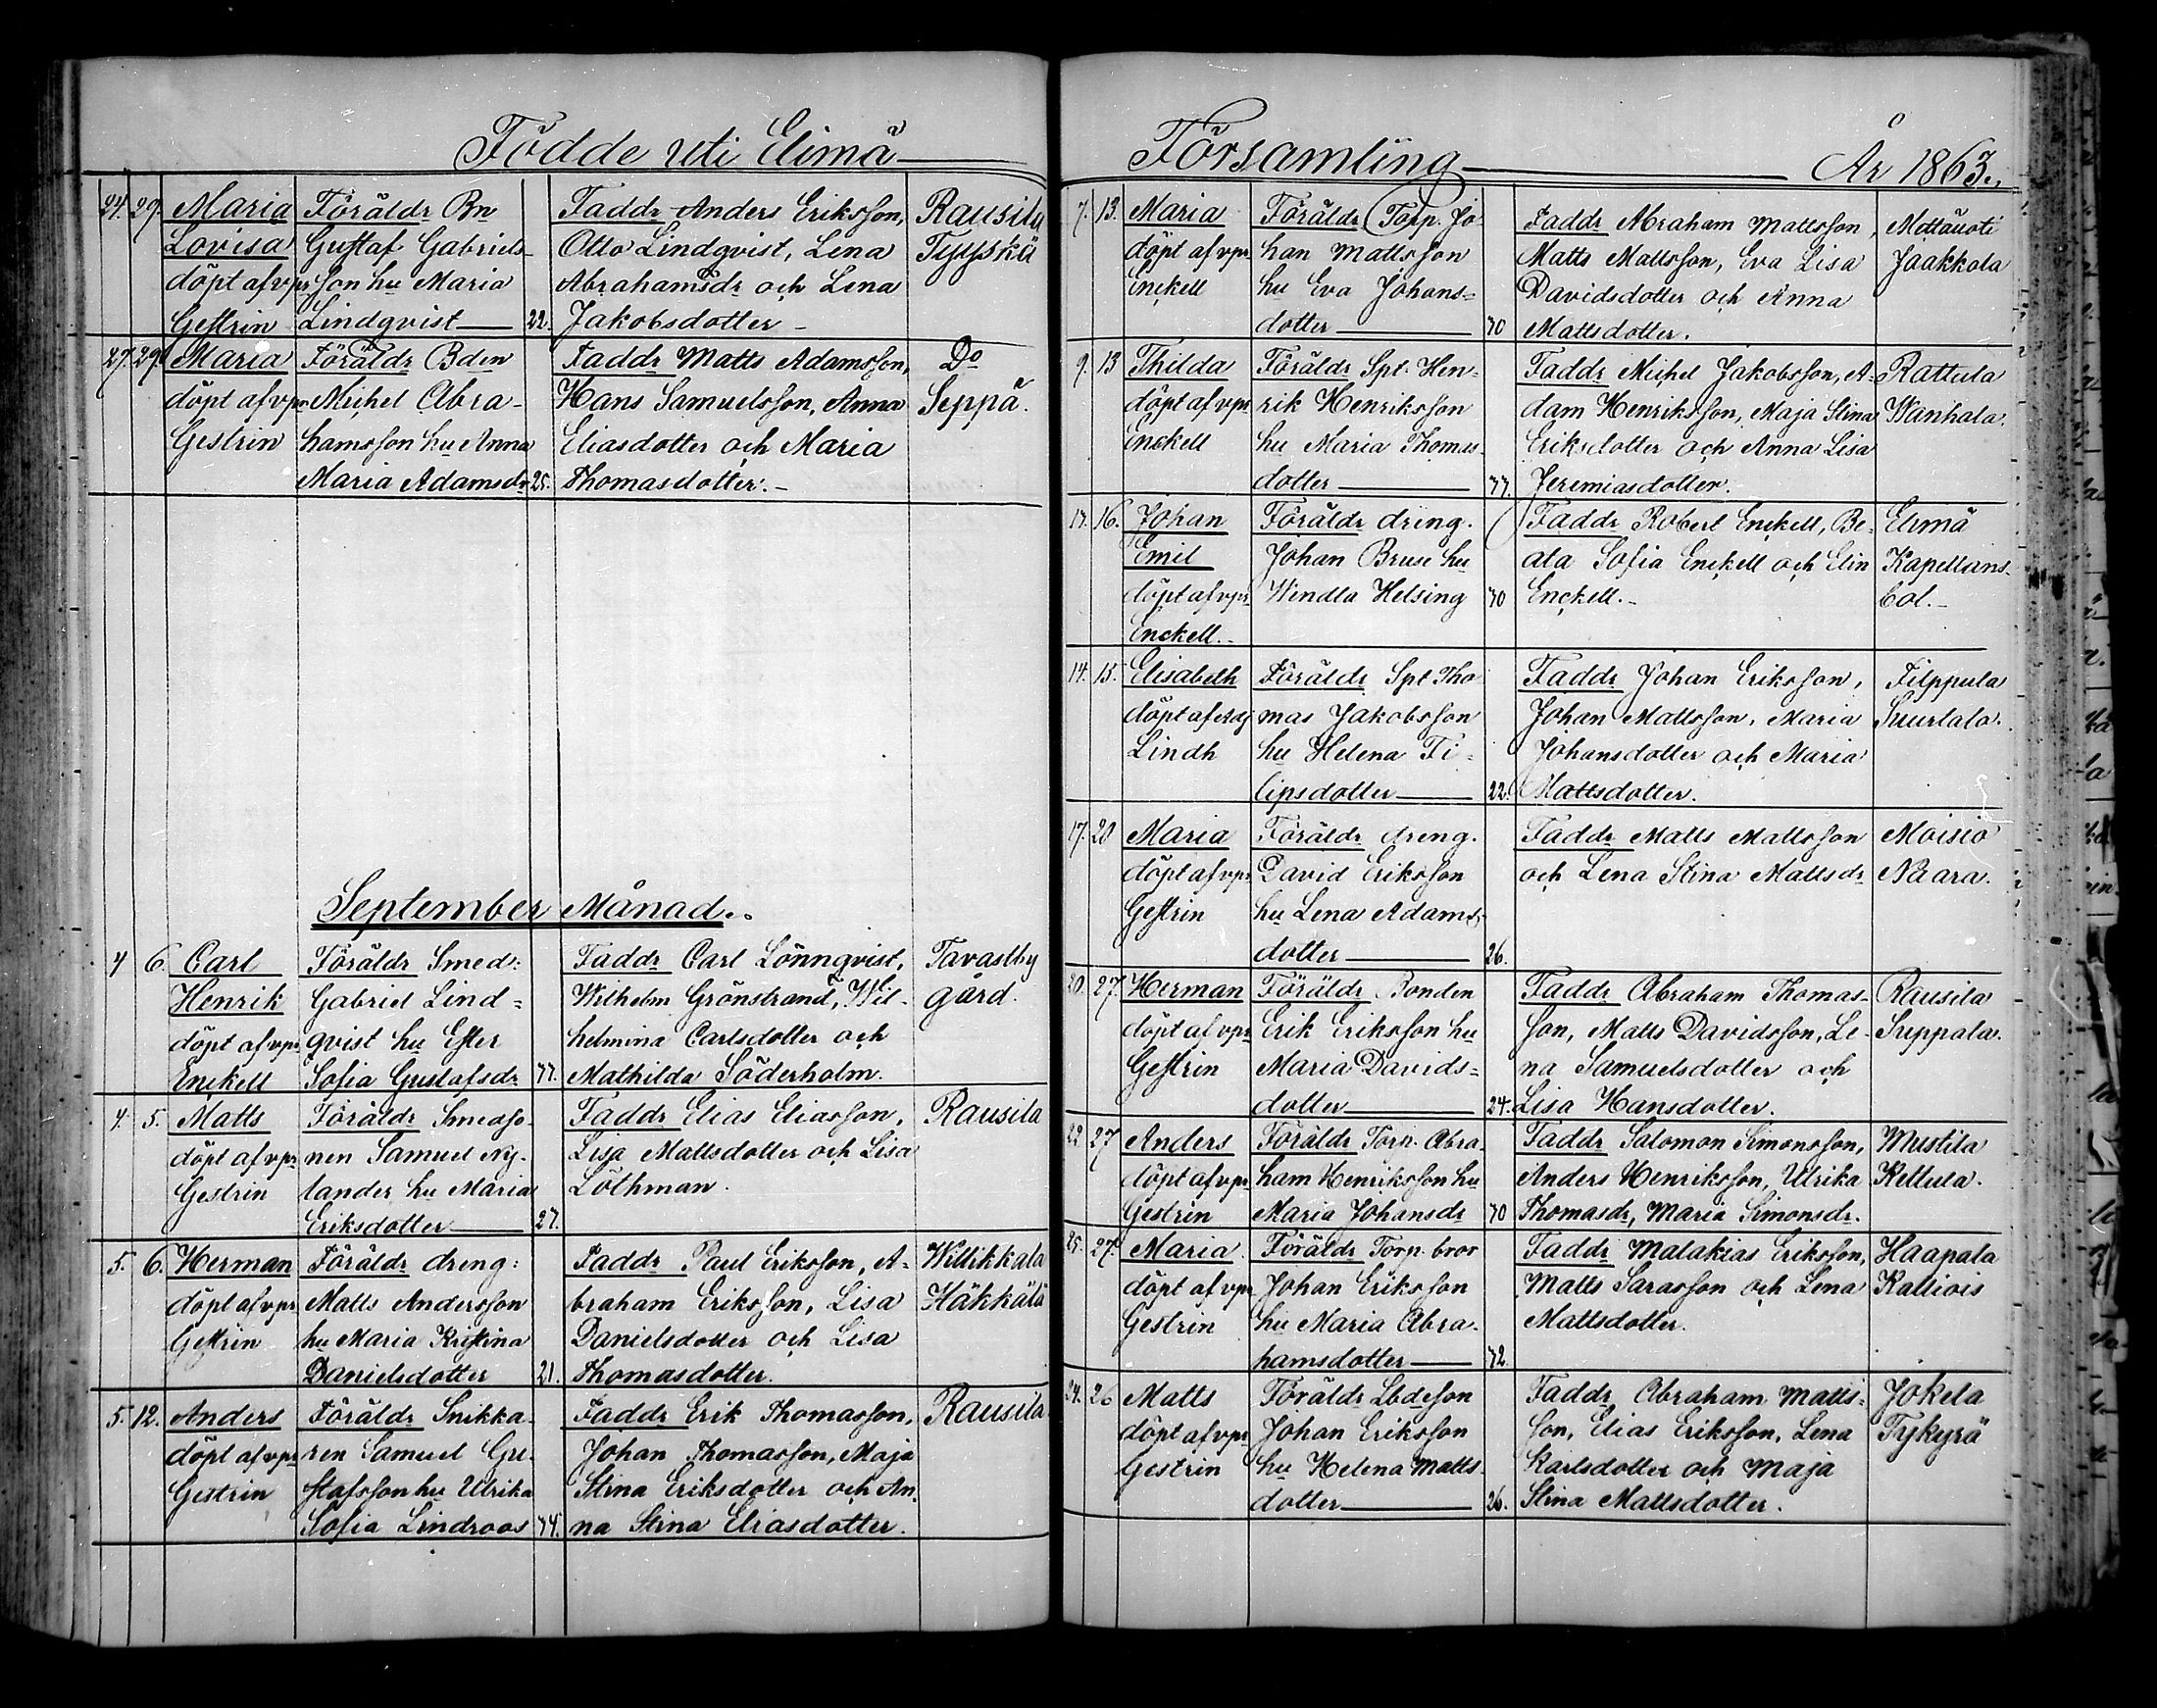 Födde uti Elimä
24. 29. Maria Föräldr Bn Faddr Anders Eriksson, Rausila
Lovisa Gustaf Gabriels- Otto Lindqvist, Lena Tyyskä
döpt af vpr son hu Maria Abrahamsdr och Lena
Gestrin Lindqvist 22. Jakobsdotter
27. 29. Maria Föräldr Bden Faddr Matts Adamsson, Do
döpt af vpr Michel Abra- Hans Samuelsson, Anna Seppä.
Gestrin hamsson hu Anna Eliasdotter och Maria
Maria Adamsdr 25. Thomasdotter.
September Månad.
4 6. Carl Föräldr Smed: Faddr Carl Lönnqvist, Tavastby
Henrik Gabriel Lind= Wilhelm Grönstrand, Wil- gård.
döpt af vpr qvist hu Ester helmina Carlsdotter och
Enckell Sofia Gustafsdr 37. Mathilda Söderholm.
4. 5. Matts Föräldr Smedso- Faddr Elias Eliasson, Rausila
döpt af vpr nen Samuel Ny- Lisa Mattsdotter och Lisa
Gestrin lander hu Maria Löthman.
Eriksdotter 27.
5. 6. Herman Föräldr dreng: Faddr Paul Eriksson, A- Willikkala
döpt af vpr Matts Andersson braham Eriksson, Lisa Häkkälä
Gestrin hu Maria Kristina Danielsdotter och Lisa
Danielsdotter 21. Thomasdotter.
5. 12. Anders Föräldr Snikka- Faddr Erik Thomasson, Rausila
döpt af vpr ren Samuel Gu- Johan Thomasson, Maja
Gestrin stafsson hu Ulrika Stina Eriksdotter och An-
Sofia Lindroos 34. na Stina Eliasdotter.
Församling År 1863.
7. 13. Maria Föräldr Torp. Jo- Faddr Abraham Mattsson, Mettäuoti
döpt af vpr han Mattsson Matts Mattsson, Eva Lisa Jaakkola
Enckell hu Eva Johans= Davidsdotter och Anna
dotter 30 Mattsdotter.
9. 13 Thilda Föräldr Spt. Hen- Faddr Michel Jakobsson, A- Rattula
döpt af vpr rik Henriksson dam Henriksson, Maja Stina Wanhala.
Enckell hu Maria Thomas- Eriksdotter och Anna Lisa
dotter 37. Jeremiasdotter.
13. 16. Johan Föräldr dreng. Faddr Robert Enckell, Be- Elimä
Emil Johan Bruse hu ata Sofia Enckell och Elin Kapellans-
döpt af vpr Wendla Helsing 30 Enckell. bol.
Enckell.
14. 15. Elisabeth Föräldr Spt Tho Faddr Johan Eriksson, Filppula
döpt af Adj mas Jakobsson Johan Mattsson, Maria Suurtalo.
Lindh hu Helena Fi- Johansdotter och Maria
lipsdotter 22. Mattsdotter.
17. 20 Maria Föräldr dreng. Faddr Matts Mattsson Moisio
döpt af vpr David Eriksson och Lena Stina Mattsdr Naara.
Gestrin hu Lena Adams-
dotter 26.
20. 27. Herman Föräldr Bonden Faddr Abraham Thomas- Rausila
döpt af vpr Erik Eriksson hu son, Matts Davidsson, Le- Suppala.
Gestrin Maria Davids= na Samuelsdotter och
dotter 24. Lisa Hansdotter.
22. 27 Anders Föräldr Torp. Abra- Faddr Salomon Simonsson, Mustila
döpt af vpr ham Henriksson hu Anders Henriksson, Ulrika Kettula.
Gestrin Maria Johansdr 30 Thomasdr, Maria Simonsdr.
25. 27. Maria Föräldr Torp. bror Faddr Malakias Eriksson, Haapala
döpt af vpr Johan Eriksson Matts Sarasson och Lena Kalliois
Gestrin hu Maria Abra- Mattsdotter.
hamsdotter 32
24. 26 Matts Föräldr Lbdeson Faddr Abraham Matts- Jokela
döpt af vpr Johan Eriksson son, Elias Eriksson, Lena Tykyrä
Gestrin hu Helena Matts- Karlsdotter och Maja
dotter 26. Stina Mattsdotter.